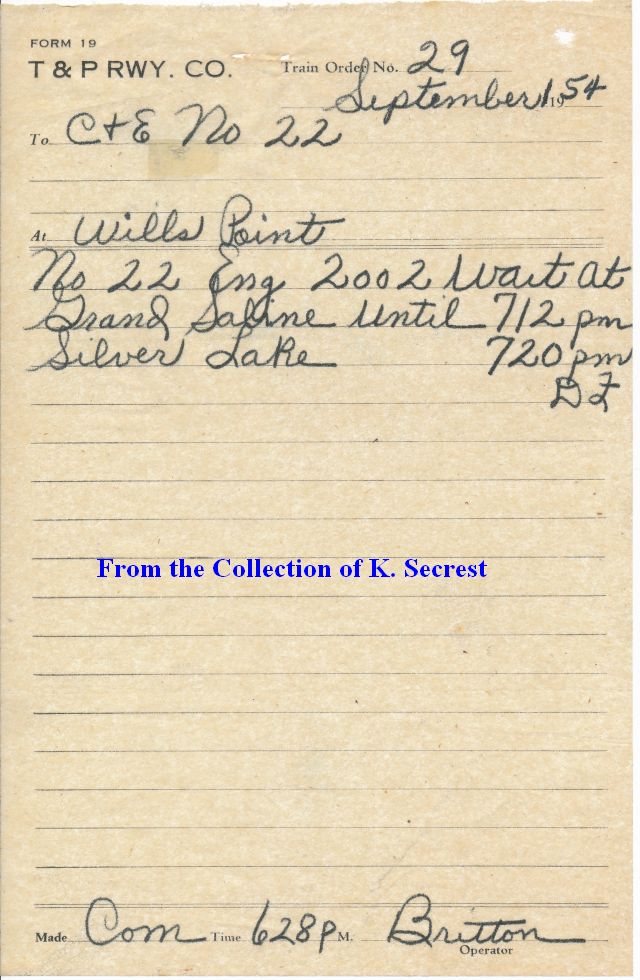 FORM 19
T & P RWY. CO. Train Order No. 29
September 1 1954
To C+E No 22
At Wills Point
No 22 Eng 2002 Wait at
Grand Saline Until 712 pm
Silver Lake 720 pm
DZ
From the Collection of K. Secrest
Made Com Time 628 P M. Britton
Operator